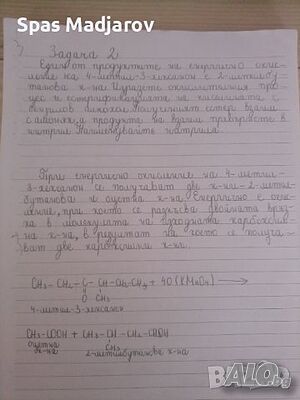 Spas Madjarov
Задача 2
Един от продуктите на енергично окис-
ление на 4-метил-3-хексанон е 2-метилбу-
танова к-на. Изразете окислителния про-
цес и естерификацията на киселината с
алкохол. Полученият естер взаимо
с амоняк, а продукта на взаим. превърнете в
нитрил. Наименувайте нитрила.
При енергично окисление на 4-метил-
3-хексанон се получават две к-ни - 2-метил-
бутанова и оцетна к-на. Енергично е окис-
ление, при което се разкъсва двойната връз-
ка в молекулата на
на к-на, в резултат на което се получа-
ват две карбоксилни к-ни.
CH₃ - CH₂ - C - CH - CH₂ - CH₃ + 4O (KMnO₄) →
O CH₃
4-метил-3-хексанон
CH₃-COOH + CH₃-CH-CH₂-COOH
оцетна CH₃
к-на 2-метилбутанова к-на
BALO.bg